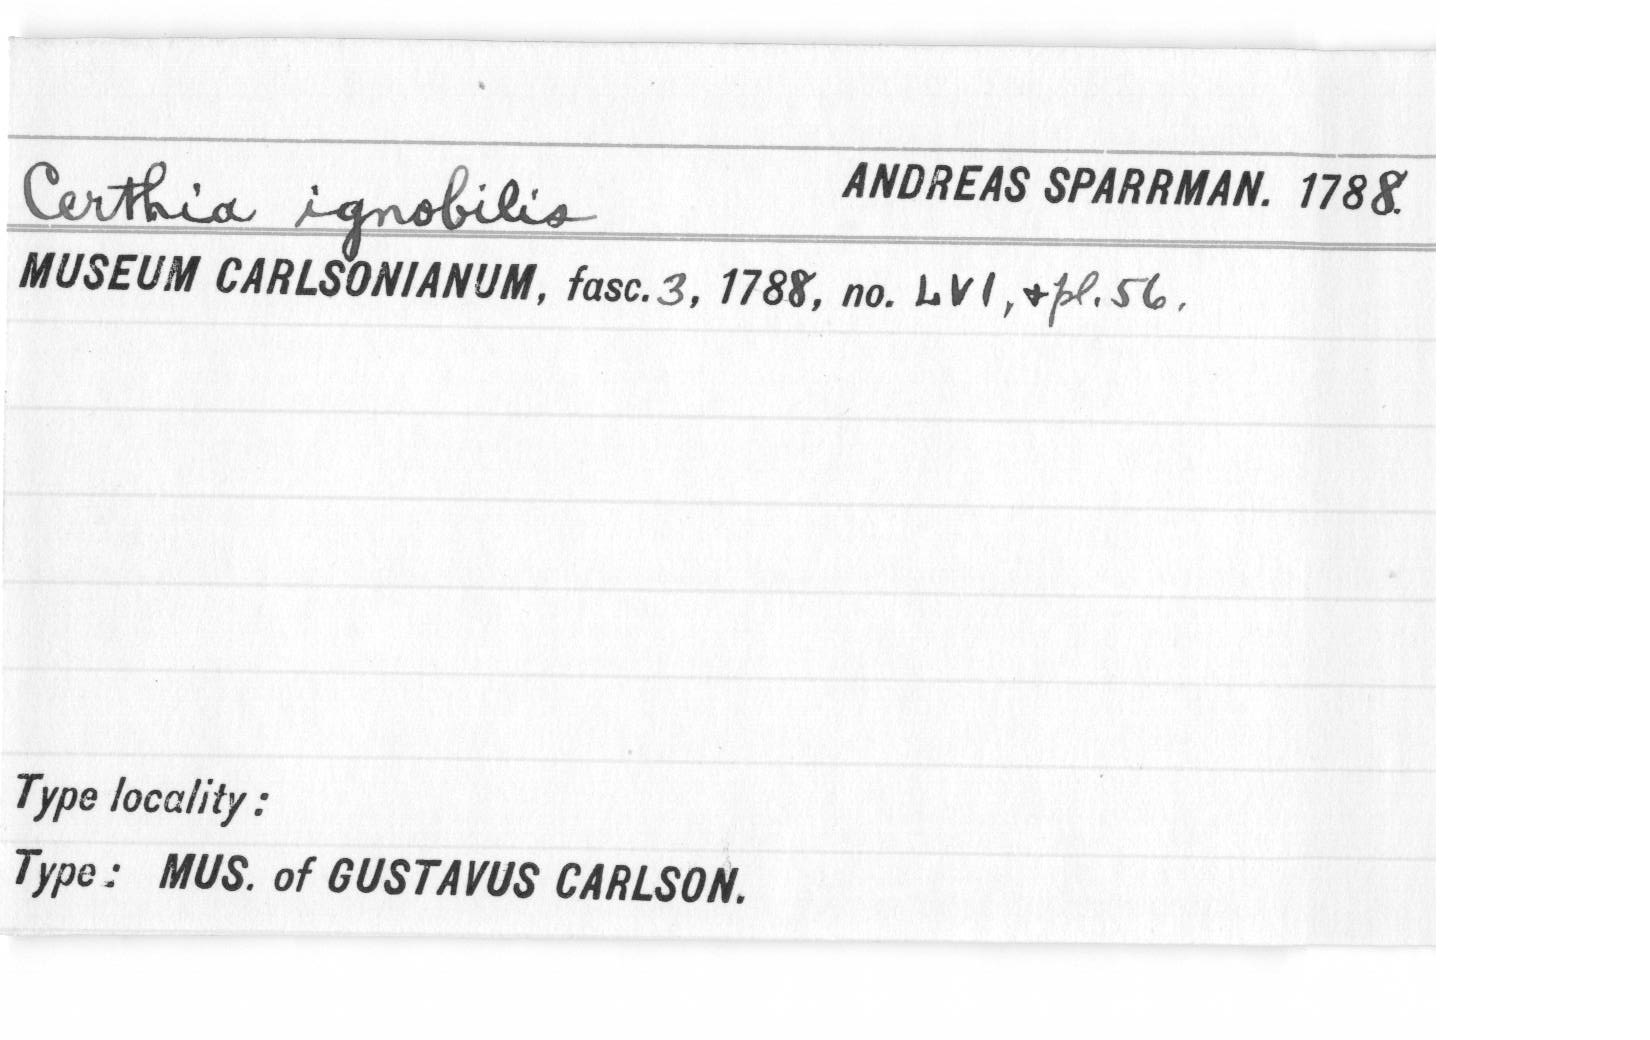 Certhia ignobilis ANDREAS SPARRMAN. 1788.
MUSEUM CARLSONIANUM, fasc. 3, 1788, no. LVI, + pl. 56.
Type locality:
Type: MUS. of GUSTAVUS CARLSON.